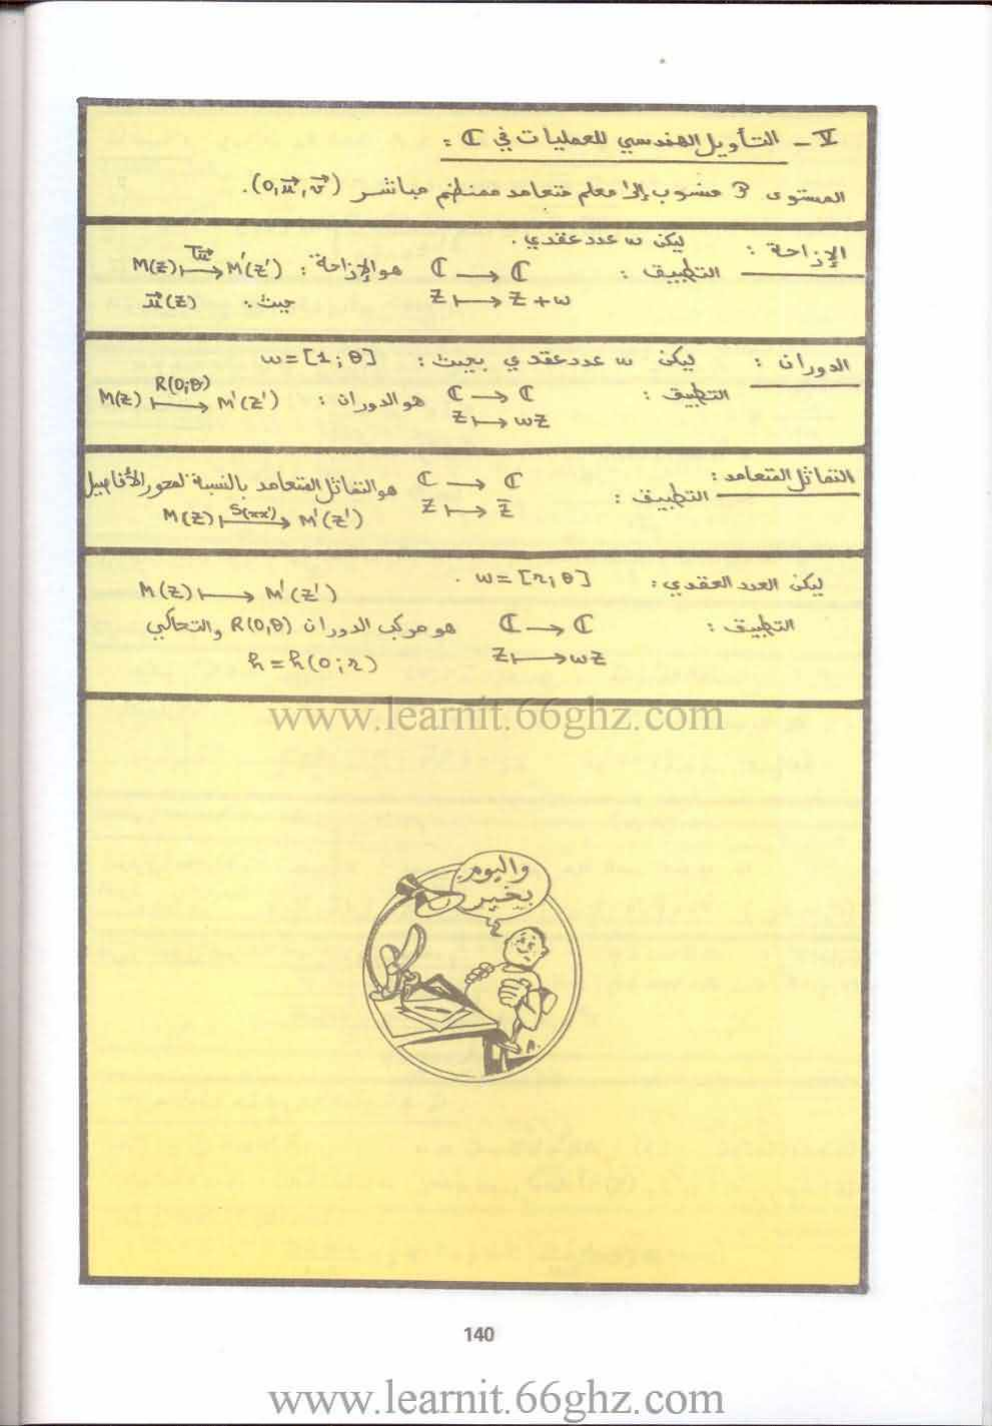 V - التأويل الهندسي للعمليات في ℂ :
المستوى P منسوب إلى معلم متعامد ممنظم مباشر (O,u⃗,v⃗).
الإزاحة : ليكن w عدد عقدي.
التطبيق : ℂ → ℂ هو الإزاحة : M(z) ⟼ M'(z') Tu⃗
z ⟼ z+w حيث : u⃗(z)
الدوران : ليكن w عدد عقدي بحيث : w=[1;θ]
التطبيق : ℂ → ℂ هو الدوران : M(z) ⟼ M'(z') R(O;θ)
z ⟼ wz
التماثل المتعامد :
التطبيق : ℂ → ℂ هو التماثل المتعامد بالنسبة لمحور الأفاصيل
z ⟼ z̄ M(z) ⟼ M'(z') S(xx')
ليكن العدد العقدي : w=[r;θ] . M(z) ⟼ M'(z')
التطبيق : ℂ → ℂ هو مركب الدوران R(O,θ) والتحاكي
z ⟼ wz h=h(O;r)
www.learnit.66ghz.com
واليوم
بخير
A.
140
www.learnit.66ghz.com